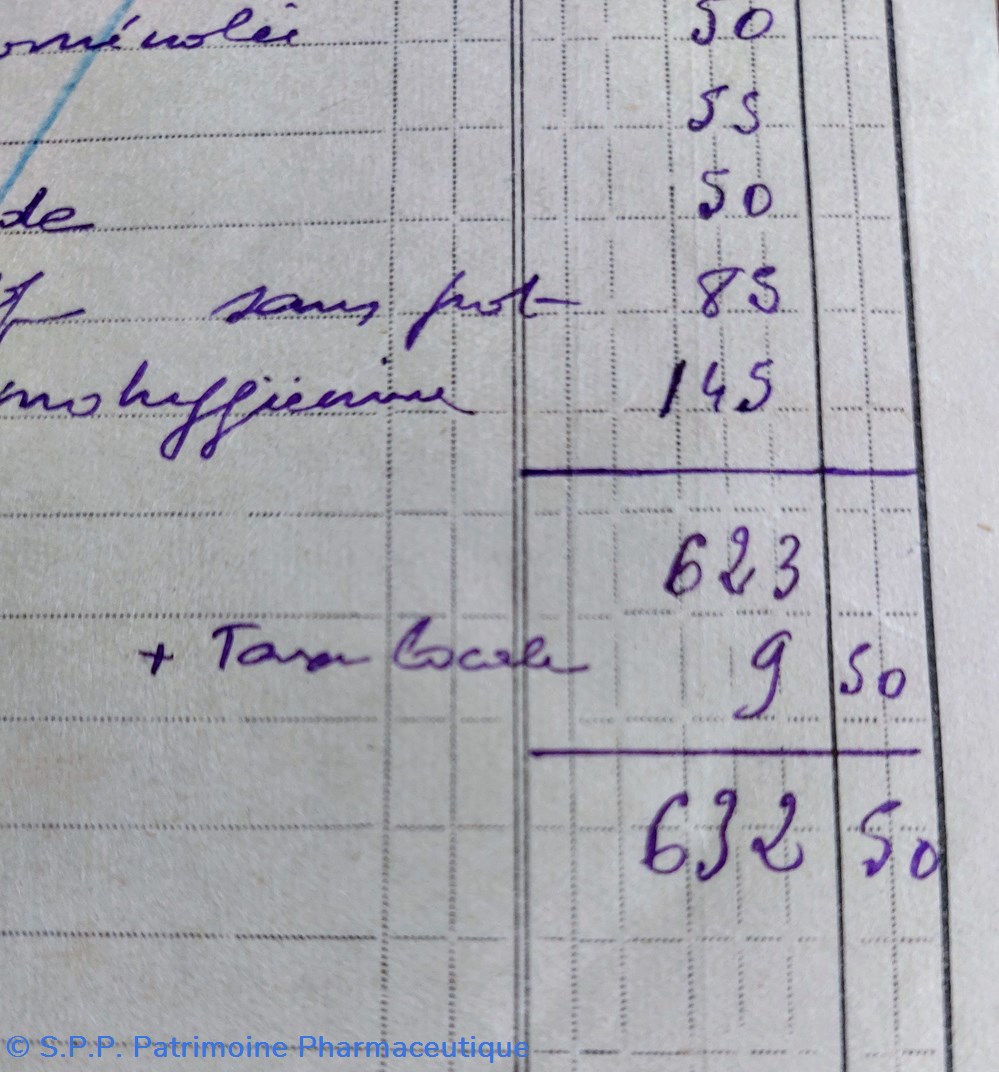 oménolée 50
55
de 50
sans pot 85
mohygiénine 145
623
+ Taxe Locale 9 50
632 50
© S.P.P. Patrimoine Pharmaceutique